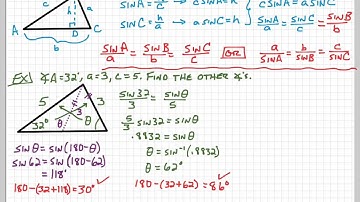 c
h
a
A
b
D
C
sin A = h/c → c sin A = h
sin C = h/a → a sin C = h
c sin A = a sin C
sin A/a = sin C/c = sin B/b
sin A/a = sin B/b = sin C/c OR a/sin A = b/sin B = c/sin C
Ex ∡A=32°, a=3, c=5. Find the other ∡'s.
5
3
3
32°
θ
θ
sin 32/3 = sin θ/5
5/3 sin 32 = sin θ
.8832 = sin θ
θ = sin⁻¹(.8832)
θ = 62°
sin θ = sin(180-θ)
sin 62 = sin(180-62)
= 118°
180-(32+118)=30° ✓
180-(32+62)=86° ✓